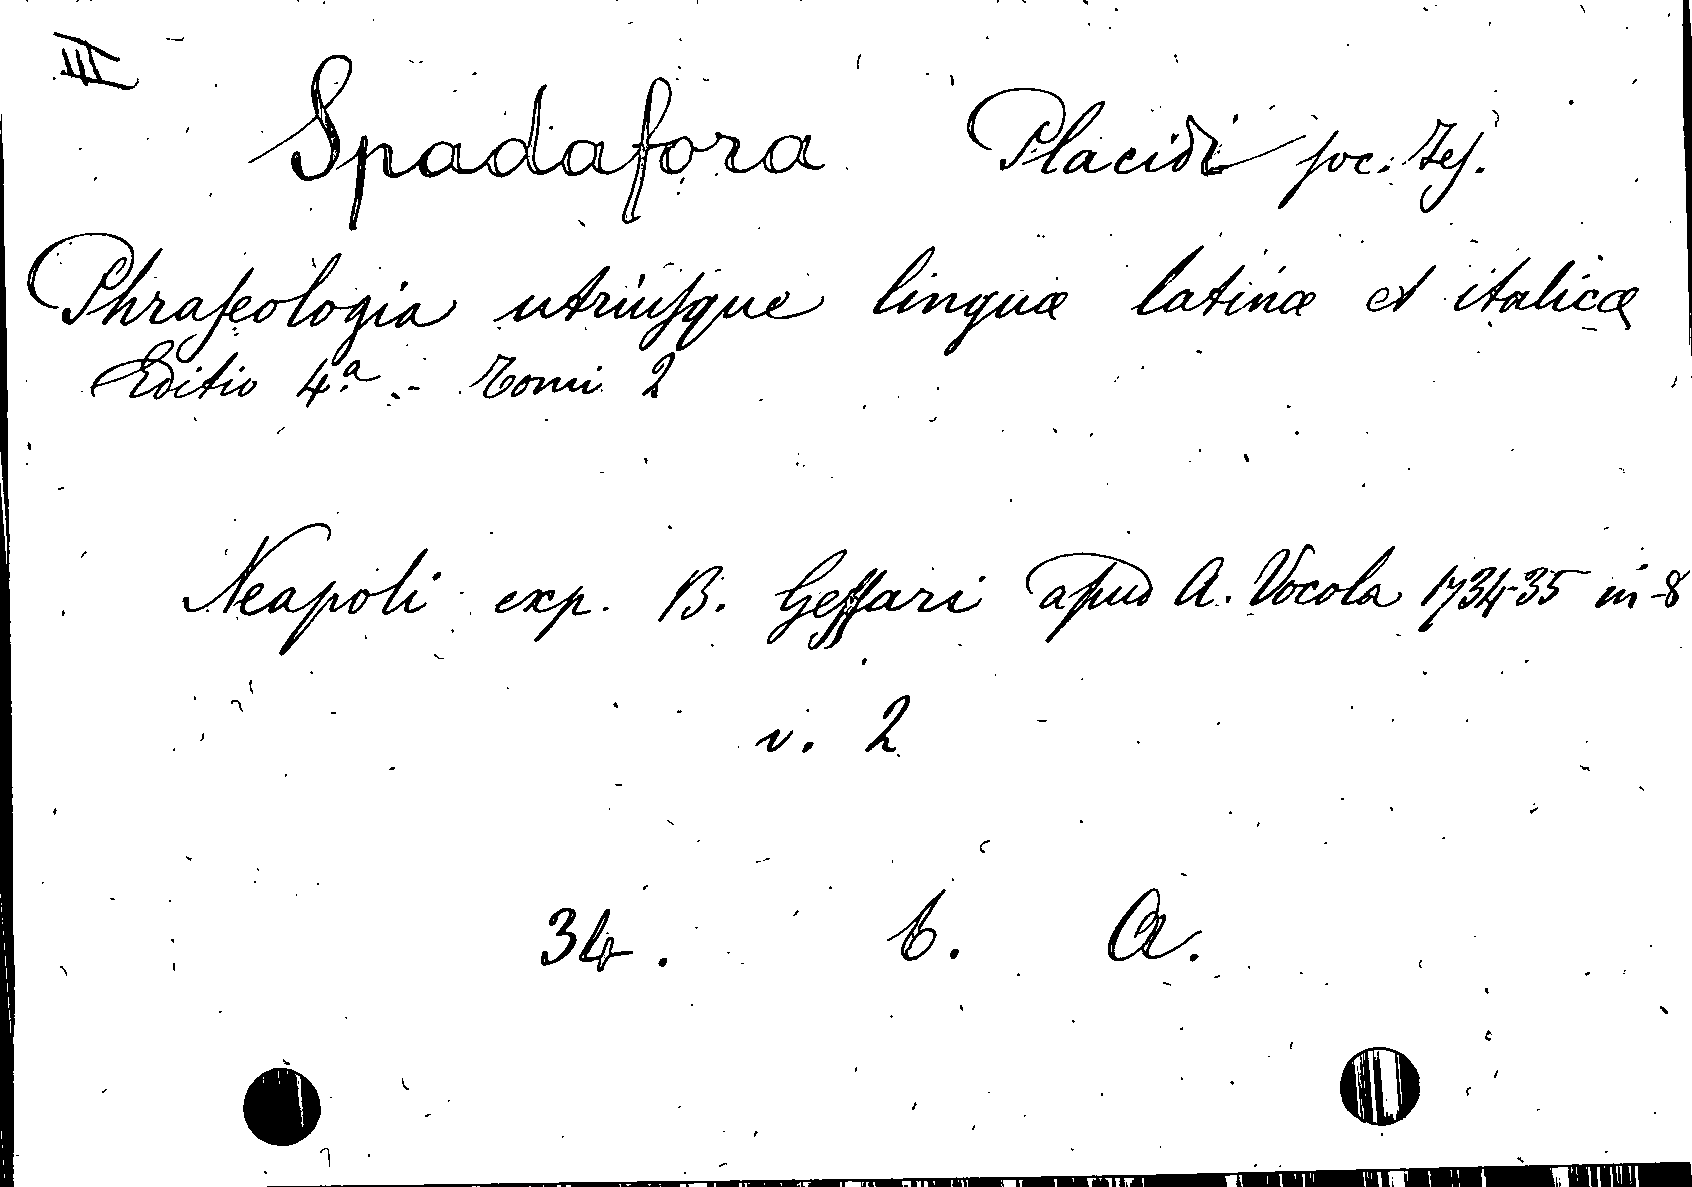 III
Spadafora Placidi soc: Jes.
Phraseologia utriusque linguæ latinæ et italicæ
Editio 4.a - Tomi 2
Neapoli exp. B. Gessari apud A. Vocola 1734-35 in-8
v. 2
34. b. A.